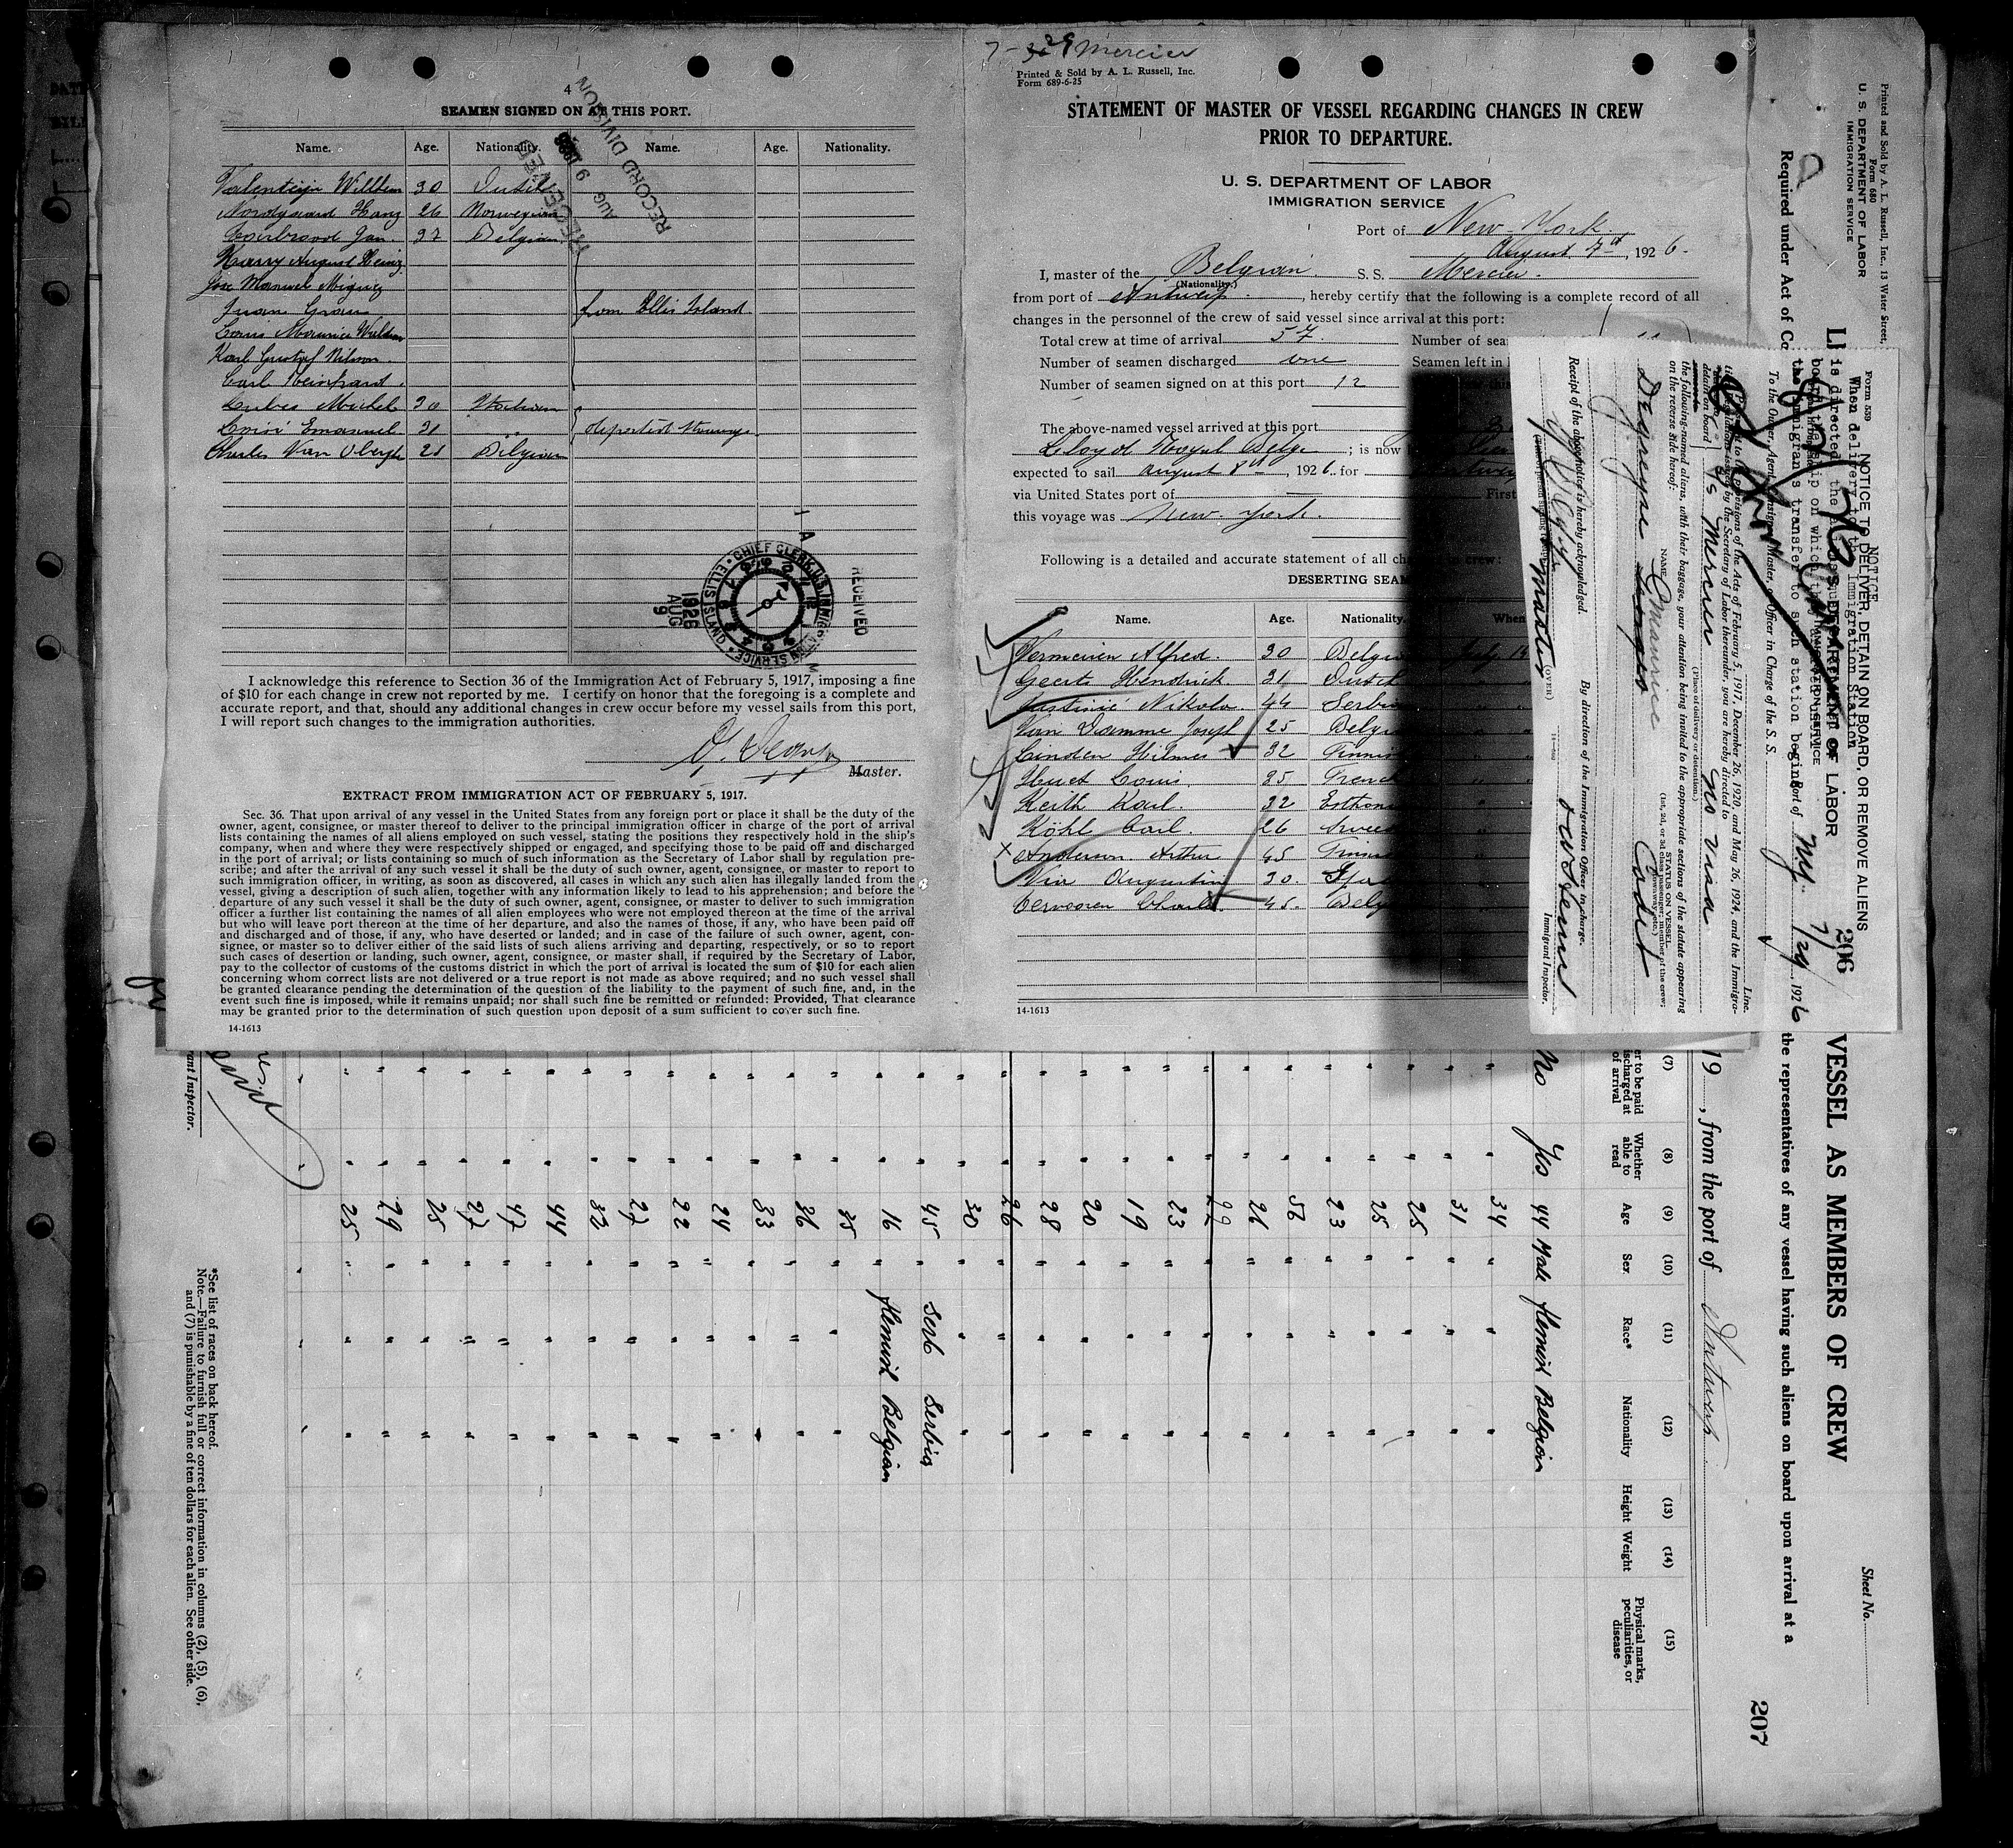 4
SEAMEN SIGNED ON AT THIS PORT.
Name. Age. Nationality. Name. Age. Nationality.
RECEIVED
AUG 9 1926
RECORD DIVISION
Valenteijn Willem 30 Dutch
Hans 26 Norwegian
Jan. 37 Belgian
Harry August Heinz
Jose Manuel Miguez
Juan
from Ellis Island
Louis Maurice
Karl Gustaf Nilson.
Carl Reinhard.
Michel 30
Emanuel 31 "
deported stowaways
Charles Van 21 Belgian
RECEIVED
CHIEF CLERK, U.S. IMMIGRATION SERVICE
ELLIS ISLAND
1926 AUG 9
I acknowledge this reference to Section 36 of the Immigration Act of February 5, 1917, imposing a fine
of $10 for each change in crew not reported by me. I certify on honor that the foregoing is a complete and
accurate report, and that, should any additional changes in crew occur before my vessel sails from this port,
I will report such changes to the immigration authorities.
Master.
EXTRACT FROM IMMIGRATION ACT OF FEBRUARY 5, 1917.
Sec. 36. That upon arrival of any vessel in the United States from any foreign port or place it shall be the duty of the
owner, agent, consignee, or master thereof to deliver to the principal immigration officer in charge of the port of arrival
lists containing the names of all aliens employed on such vessel, stating the positions they respectively hold in the ship's
company, when and where they were respectively shipped or engaged, and specifying those to be paid off and discharged
in the port of arrival; or lists containing so much of such information as the Secretary of Labor shall by regulation pre-
scribe; and after the arrival of any such vessel it shall be the duty of such owner, agent, consignee, or master to report to
such immigration officer, in writing, as soon as discovered, all cases in which any such alien has illegally landed from the
vessel, giving a description of such alien, together with any information likely to lead to his apprehension; and before the
departure of any such vessel it shall be the duty of such owner, agent, consignee, or master to deliver to such immigration
officer a further list containing the names of all alien employees who were not employed thereon at the time of the arrival
but who will leave port thereon at the time of her departure, and also the names of those, if any, who have been paid off
and discharged and of those, if any, who have deserted or landed; and in case of the failure of such owner, agent, con-
signee, or master so to deliver either of the said lists of such aliens arriving and departing, respectively, or so to report
such cases of desertion or landing, such owner, agent, consignee, or master shall, if required by the Secretary of Labor,
pay to the collector of customs of the customs district in which the port of arrival is located the sum of $10 for each alien
concerning whom correct lists are not delivered or a true report is not made as above required; and no such vessel shall
be granted clearance pending the determination of the question of the liability to the payment of such fine, and, in the
event such fine is imposed, while it remains unpaid; nor shall such fine be remitted or refunded: Provided, That clearance
may be granted prior to the determination of such question upon deposit of a sum sufficient to cover such fine.
14-1613
7- 29 Mercier
Printed & Sold by A. L. Russell, Inc.
Form 689-6-25
STATEMENT OF MASTER OF VESSEL REGARDING CHANGES IN CREW
PRIOR TO DEPARTURE.
U. S. DEPARTMENT OF LABOR
IMMIGRATION SERVICE
Port of New-York.
August 7th, 1926.
I, master of the Belgian S.S. Mercier.
(Nationality.)
from port of Antwerp., hereby certify that the following is a complete record of all
changes in the personnel of the crew of said vessel since arrival at this port:
Total crew at time of arrival 57. Number of sea
Number of seamen discharged one Seamen left in
Number of seamen signed on at this port 12
The above-named vessel arrived at this port
Lloyd Royal Belge; is now
expected to sail august 8th, 1926. for
via United States port of — First
this voyage was New-york.
Following is a detailed and accurate statement of all changes in crew:
DESERTING SEAM
Name. Age. Nationality. When
Vermeiren Alfred. 30 Belgi July 14
Geerts Hendrick 31 Dutch
Nikola 44 Serbi
Van Damme Joseph 25 Belgi
Linden Hilmer 32 Finnis
Huet Louis. 35 French
Keith Karl. 32 Esthoni
Köhl Carl. 26 Swed
x Anderson Arthur 45 Finni
Via Augustin 30. Spa
Vervooren Charles 45. Belg
14-1613
206
Form 539
NOTICE TO DELIVER, DETAIN ON BOARD, OR REMOVE ALIENS
U. S. DEPARTMENT OF LABOR
IMMIGRATION SERVICE
NOTICE
When delivery to the Immigration Station
is directed
Port of Ny 7/29 1926
To the Owner, Agent, Consignee, Master, or Officer in Charge of the S. S.
Ss Mercier Line.
Pursuant to the provisions of the Acts of February 5, 1917, December 26, 1920, and May 26, 1924, and the Immigra-
tion Regulations issued by the Secretary of Labor thereunder, you are hereby directed to
detain on board
no visa
(Place of delivery or detention.)
the following-named aliens, with their baggage, your attention being invited to the appropriate sections of the statute appearing
on the reverse side hereof:
NAME STATUS ON VESSEL
(1st, 2d, or 3d class passenger; member of the crew; stowaway, etc.)
Degreyne Maurice Cadet
By direction of the Immigration Officer in charge.
Immigrant Inspector.
Receipt of the above notice is hereby acknowledged.
master
(OVER)
Printed and Sold by A. L. Russell, Inc., 13 Water Street,
Form 680
U. S. DEPARTMENT OF LABOR
IMMIGRATION SERVICE
Sheet No.
207
VESSEL AS MEMBERS OF CREW
Required under Act of Co
the representatives of any vessel having such aliens on board upon arrival at a
19 , from the port of Antwerp
(7) (8) (9) (10) (11) (12) (13) (14) (15)
er to be paid
ischarged at
of arrival
Whether able to read
Age
Sex
Race*
Nationality
Height
Weight
Physical marks, peculiarities, or disease
No Yes 44 Male flemish Belgian
" " 34 " " "
" " 31 " " "
" " 25 " " "
" " 25 " " "
" " 23 " " "
" " 56 " " "
" " 26 " " "
" " 29 " " "
" " 23 " " "
" " 19 " " "
" " 20 " " "
" " 28 " " "
" " 26 " " "
" " 30 " " "
" " 45 " Serb Serbia
" " 16 " flemish Belgian
" " 35 " " "
" " 36 " " "
" " 33 " " "
" " 24 " " "
" " 22 " " "
" " 27 " " "
" " 32 " " "
" " 44 " " "
" " 47 " " "
" " 27 " " "
" " 25 " " "
" " 29 " " "
" " 25 " " "
rant Inspector.
*See list of races on back hereof.
Note.—Failure to furnish full or correct information in columns (2), (5), (6),
and (7) is punishable by a fine of ten dollars for each alien. See other side.